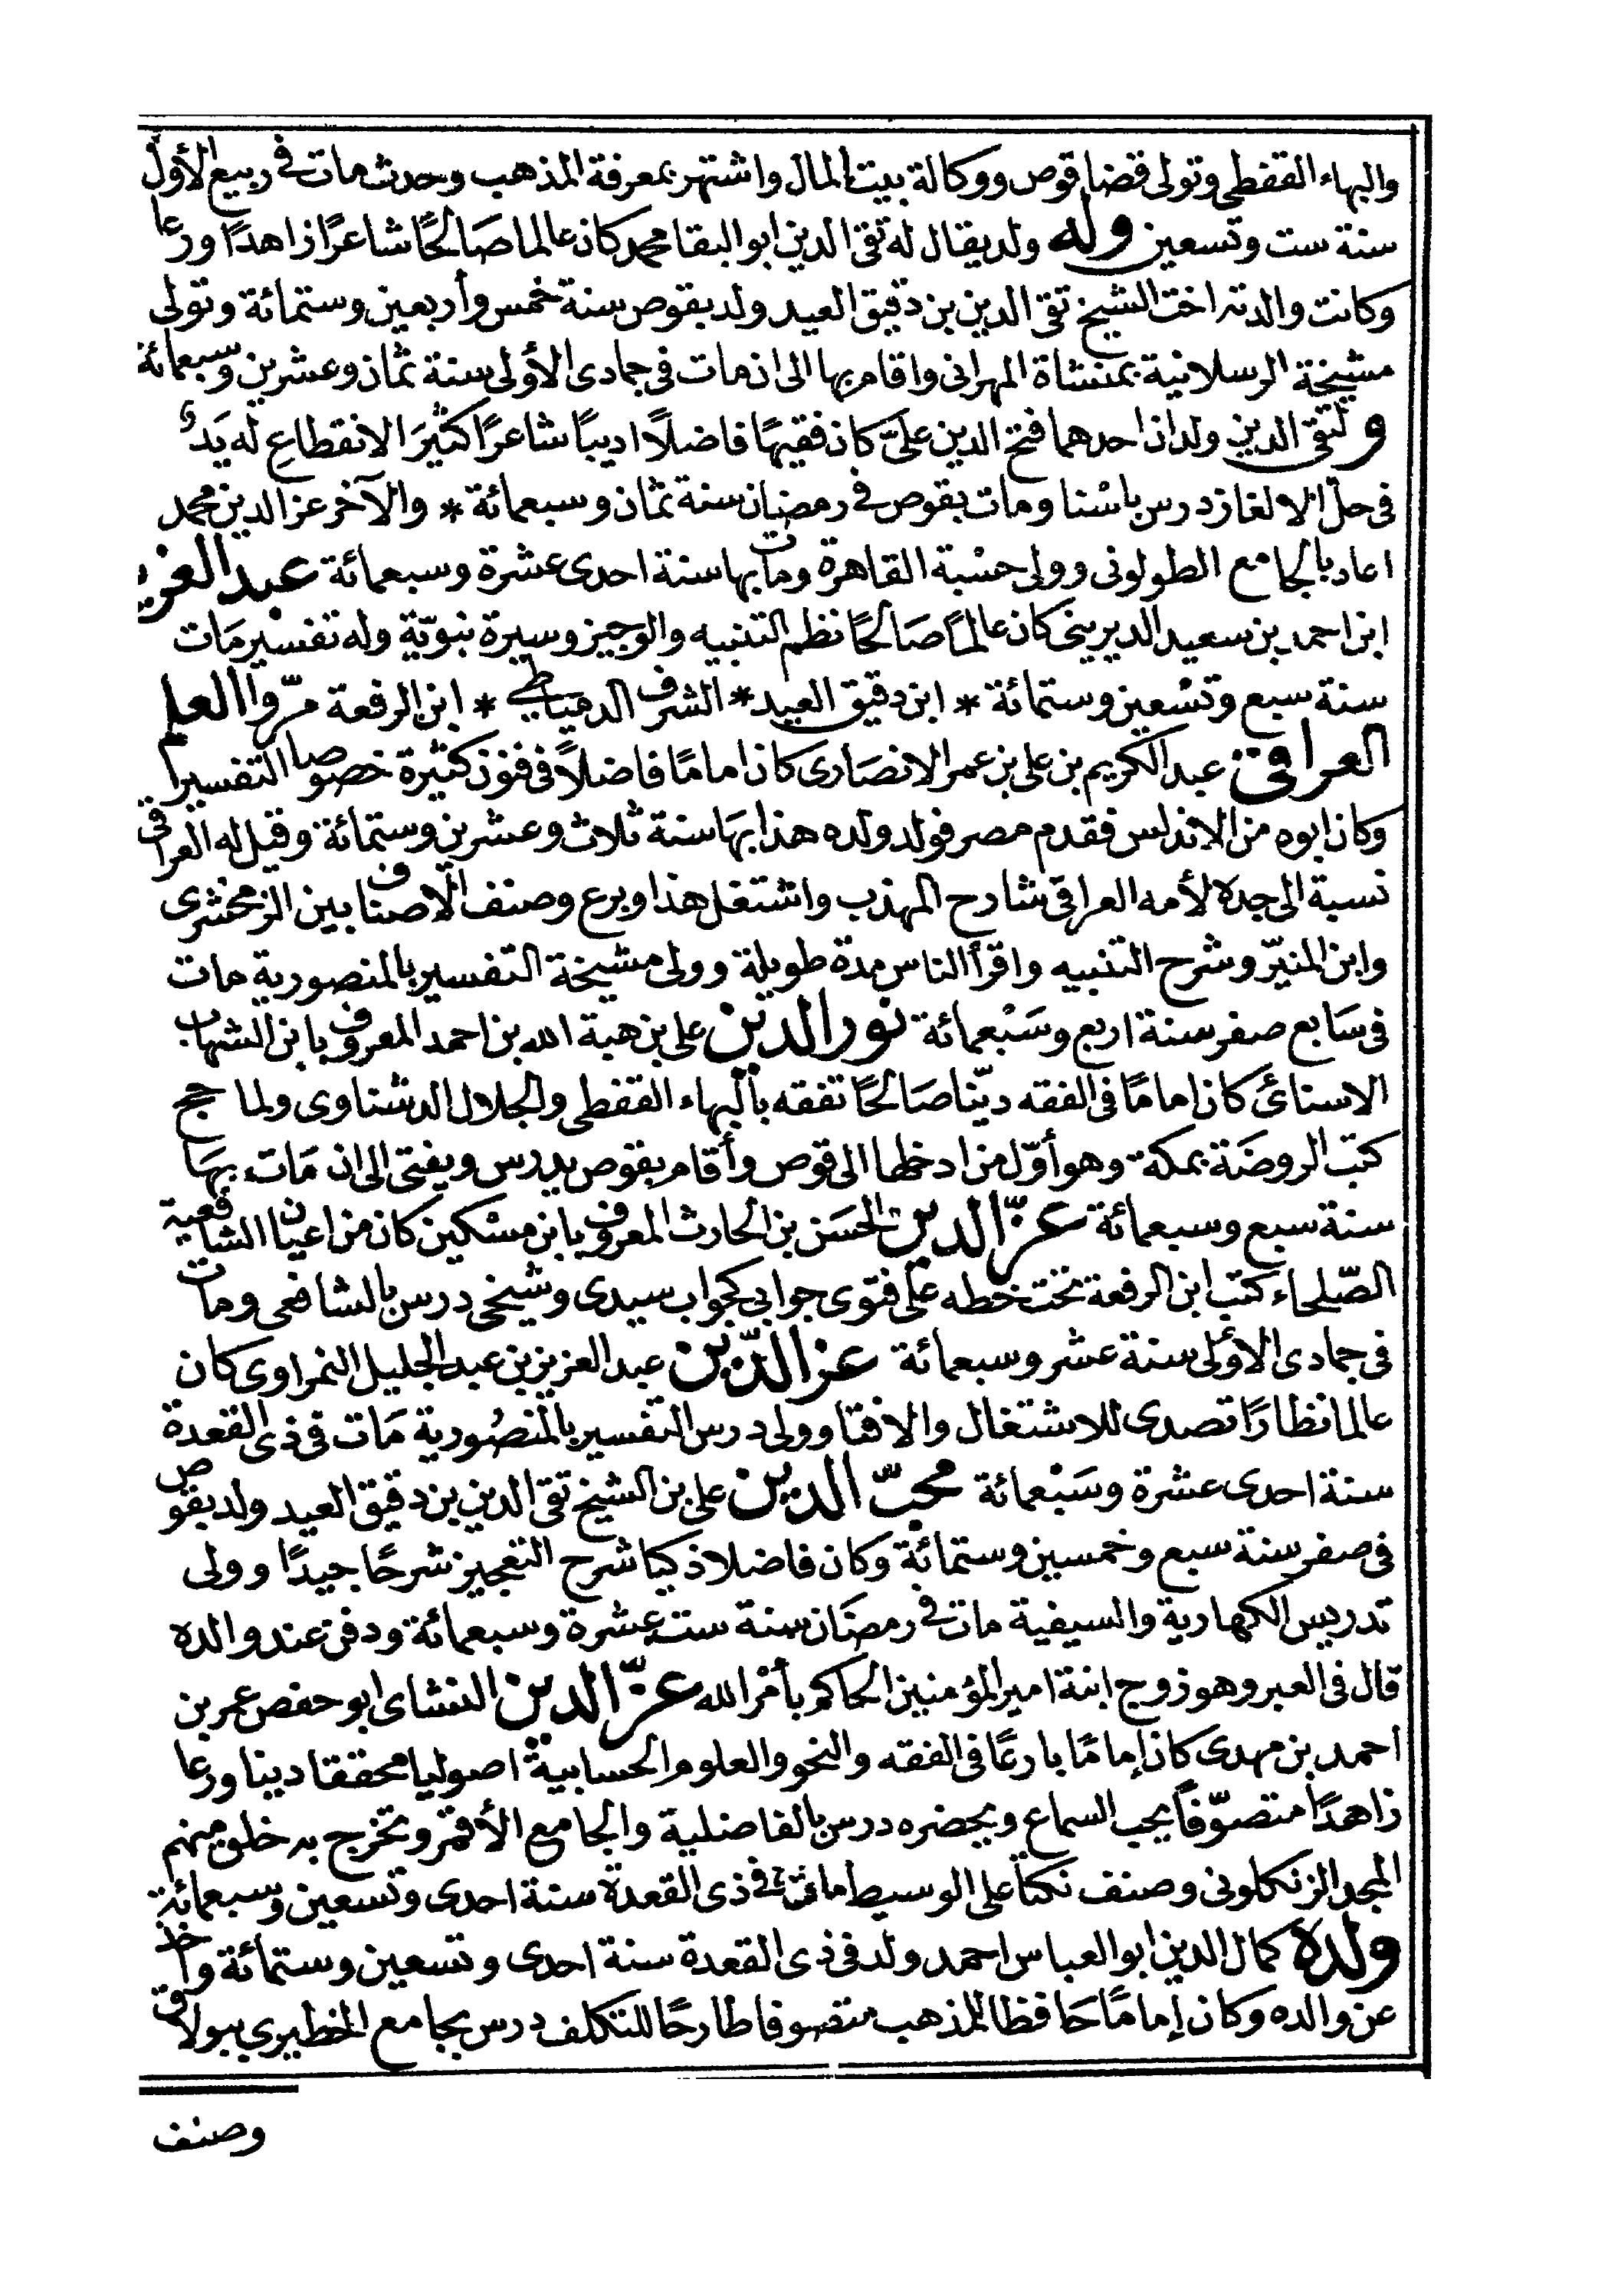 والبهاء القفطى وتولى قضا قوص ووكالة بيت المال واشتهر بمعرفة المذهب وحدث مات فى ربيع الأول
سنة ست وتسعين وله ولد يقال له تقى الدين ابو البقا محمد كان عالما صَالحًا شاعرًا زاهدًا ورعا
وكانت والدته اخت الشيخ تقى الدين بن دقيق العيد ولد بقوص سنة خمس وأربعين وستمائة وتولى
مشيخة الرسلانية بمنشاة المهرانى واقام بها الى ان مات فى جمادى الأولى سنة ثمان وعشرين وسبعمائة
ولتقى الدين ولدان احدهما فتح الدين علىّ كان فقيهًا فاضلًا اديبًا شاعرًا كثيرَ الانقطاعِ له يَدٌ
فى حلّ الالغاز درس باسْنا ومات بقوص فى رمضان سنة ثمان وسبعمائة * والآخر عز الدين محمد
اعاد بالجامع الطولونى وولى حسْبة القاهرة ومات بها سنة احدى عشرة وسبعمائة عبد العزيز
ابن احمد بن سعيد الديرينى كان عالمًا صَالحًا نظم التنبيه والوجيز وسيرة نبويّة وله تفسير مَات
سنة سبع وتسْعين وستمائة * ابن دقيق العيد * الشرف الدميَاطى * ابن الرفعة مرّوا العلم
العراقى عبد الكريم بن على بن عمر الانصَارى كان امامًا فاضلًا فى فنون كثيرة خصوصا التفسير
وكان ابوه من الاندلس فقدم مصر فولد ولده هذا بهَا سنة ثلاث وعشرين وستمائة وقيل له العراقى
نسبة الى جده لأمه العراقى شارح المهذب واشتغل هذا وبرع وصنف الانصاف بين الزمخشرى
وابن المنيّر وشرح التنبيه واقرأ الناس مدة طويلة وولى مشيخة التفسير بالمنصورية مات
فى سَابع صفر سنة اربع وسَبْعمائة نور الدين على بن هبة الله بن احمد المعروف بابن الشهاب
الاسنائى كان امامًا فى الفقه ديّنا صَالحًا تفقه بالبهاء القفطى والجلال الدشناوى ولما حج
كتب الروضَة بمكة وهو أوّل من ادخلها الى قوص وأقام بقوص يدرس ويفتى الى ان مَات بهَا
سنة سبع وسبعمائة عزّ الدين الحسَن بن الحارث المعروف بابن مسْكين كان من اعيان الشافعية
الصّلحاء كتب ابن الرفعة تحت خطه على فتوى جوابى كجواب سيدى وشيخى درس بالشافعى ومات
فى جمادى الأولى سنة عشر وسبعمائة عز الدّين عبد العزيز بن عبد الجليل النمراوى كان
عالما نظارًا تصدى للاشتغال والافتا وولى درس التفسير بالمنصُورية مَات فى ذى القعدة
سنة احدى عشرة وسَبْعمائة محبّ الدين على بن الشيخ تقى الدين بن دقيق العيد ولد بقوص
فى صفر سنة سبع وخمسين وستمائة وكان فاضلا ذكيا شرح التعجيز شرحًا جيدًا وولى
تدريس الكهارية والسيفية مات فى رمضَان سنة ست عشرة وسبعمائة ودفن عند والده
قال فى العبر وهو زوج ابنة امير المؤمنين الحاكم بأمْر الله عزّ الدين النشاى ابو حفص عمر بن
احمد بن مهدى كان إمامًا بارعًا فى الفقه والنحو والعلوم الحسابية اصوليا محققا دينا ورعا
زاهدًا متصوّفًا يحب السماع ويحضره درس بالفاضلية والجامع الأقمر وتخرج به خلق منهم
المجد الزنكلونى وصنف نكتًا على الوسيط مات فى ذى القعدة سنة احدى وتسعين وسبعمائة
ولده كمال الدين ابو العباس احمد ولد فى ذى القعدة سنة احدى وتسعين وستمائة واخذ
عن والده وكان إمامًا حَافظا للمذهب متصوفا طارحًا للتكلف درس بجامع الخطيري ببولاق
وصنف